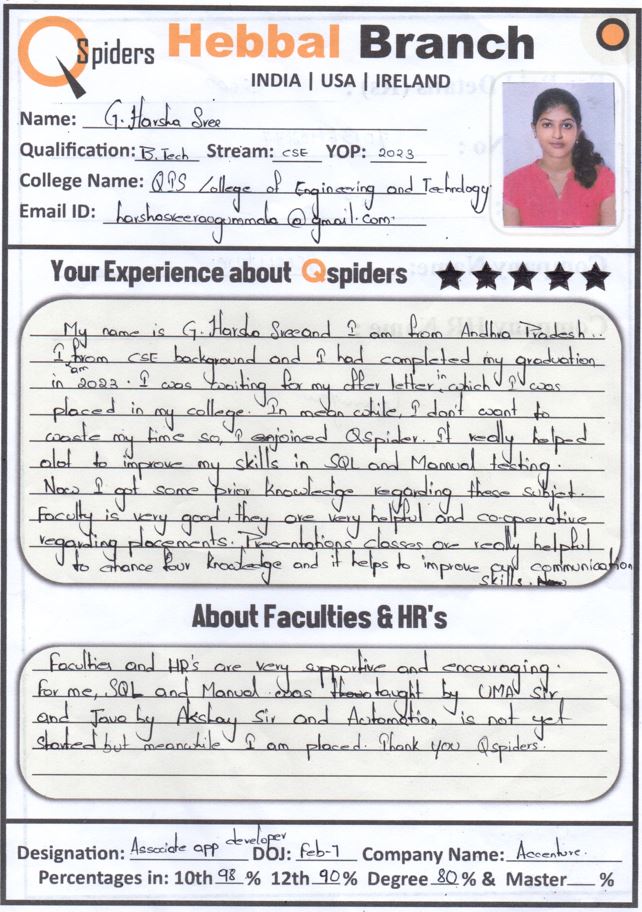 QSpiders Hebbal Branch
INDIA | USA | IRELAND
Name: G. Harsha Sree
Qualification: B.Tech Stream: CSE YOP: 2023
College Name: QIS College of Engineering and Technology
Email ID: harshasreeraogummala@gmail.com
Your Experience about Qspiders
My name is G. Harsha Sree and I am from Andhra Pradesh..
I am from CSE background and I had completed my graduation
in 2023. I was waiting for my offer letter in which I was
placed in my college. In mean while, I don't want to
waste my time so, I enjoined QSpider. It really helped
alot to improve my skills in SQL and Manual testing.
Now I got some prior knowledge regarding these subject.
Faculty is very good, they are very helpful and co-operative
regarding placements. Presentations classes are really helpful
to ehance our knowledge and it helps to improve our communication
skills.
About Faculties & HR's
Faculties and HR's are very supportive and encouraging.
For me, SQL and Manual was taught by UMA Sir,
and Java by Akshay Sir and Automation is not yet
started but meanwhile I am placed. Thank you Qspiders.
Designation: Associate app developer DOJ: Feb-7 Company Name: Accenture.
Percentages in: 10th 98 % 12th 90 % Degree 80 % & Master %